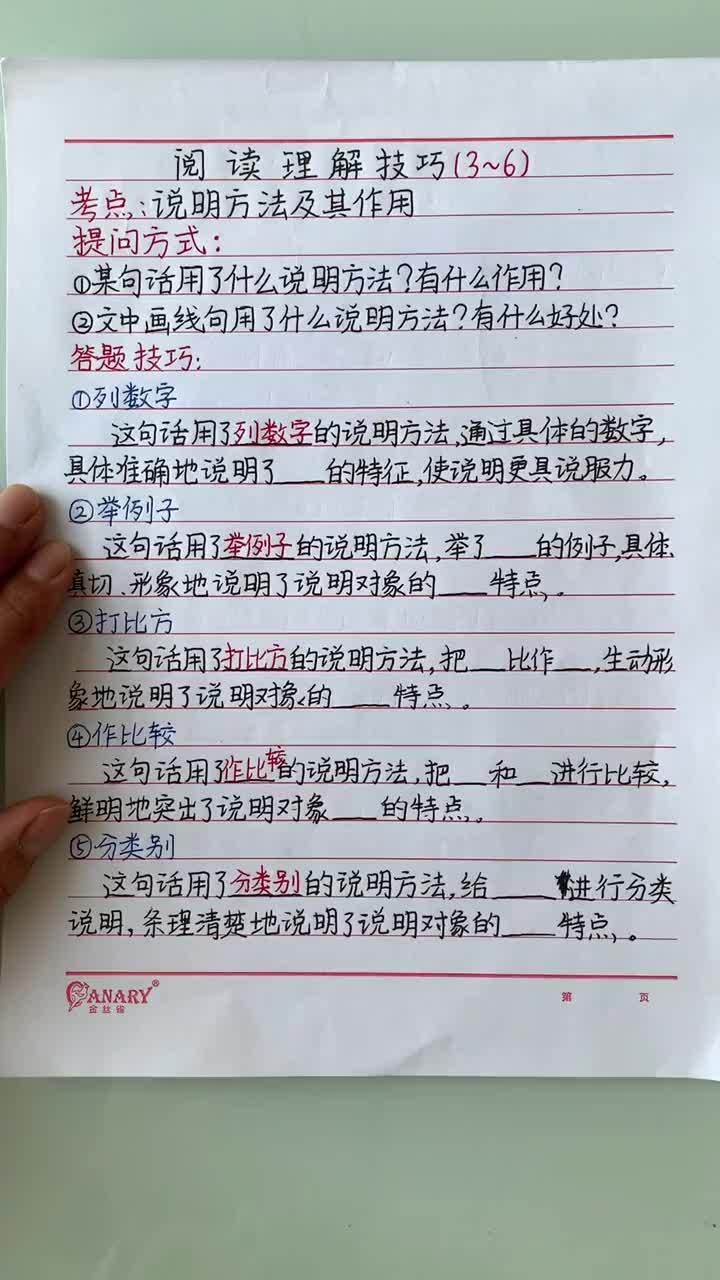 阅读理解技巧(3~6)
考点:说明方法及其作用
提问方式:
①某句话用了什么说明方法?有什么作用?
②文中画线句用了什么说明方法?有什么好处?
答题技巧:
①列数字
这句话用了列数字的说明方法,通过具体的数字,
具体准确地说明了___的特征,使说明更具说服力。
②举例子
这句话用了举例子的说明方法,举了___的例子,具体、
真切、形象地说明了说明对象的___特点。
③打比方
这句话用了打比方的说明方法,把__比作__,生动形
象地说明了说明对象的___特点。
④作比较
这句话用了作比较的说明方法,把__和__进行比较,
鲜明地突出了说明对象___的特点。
⑤分类别
这句话用了分类别的说明方法,给____进行分类
说明,条理清楚地说明了说明对象的___特点。
CANARY®
金丝雀
第 页